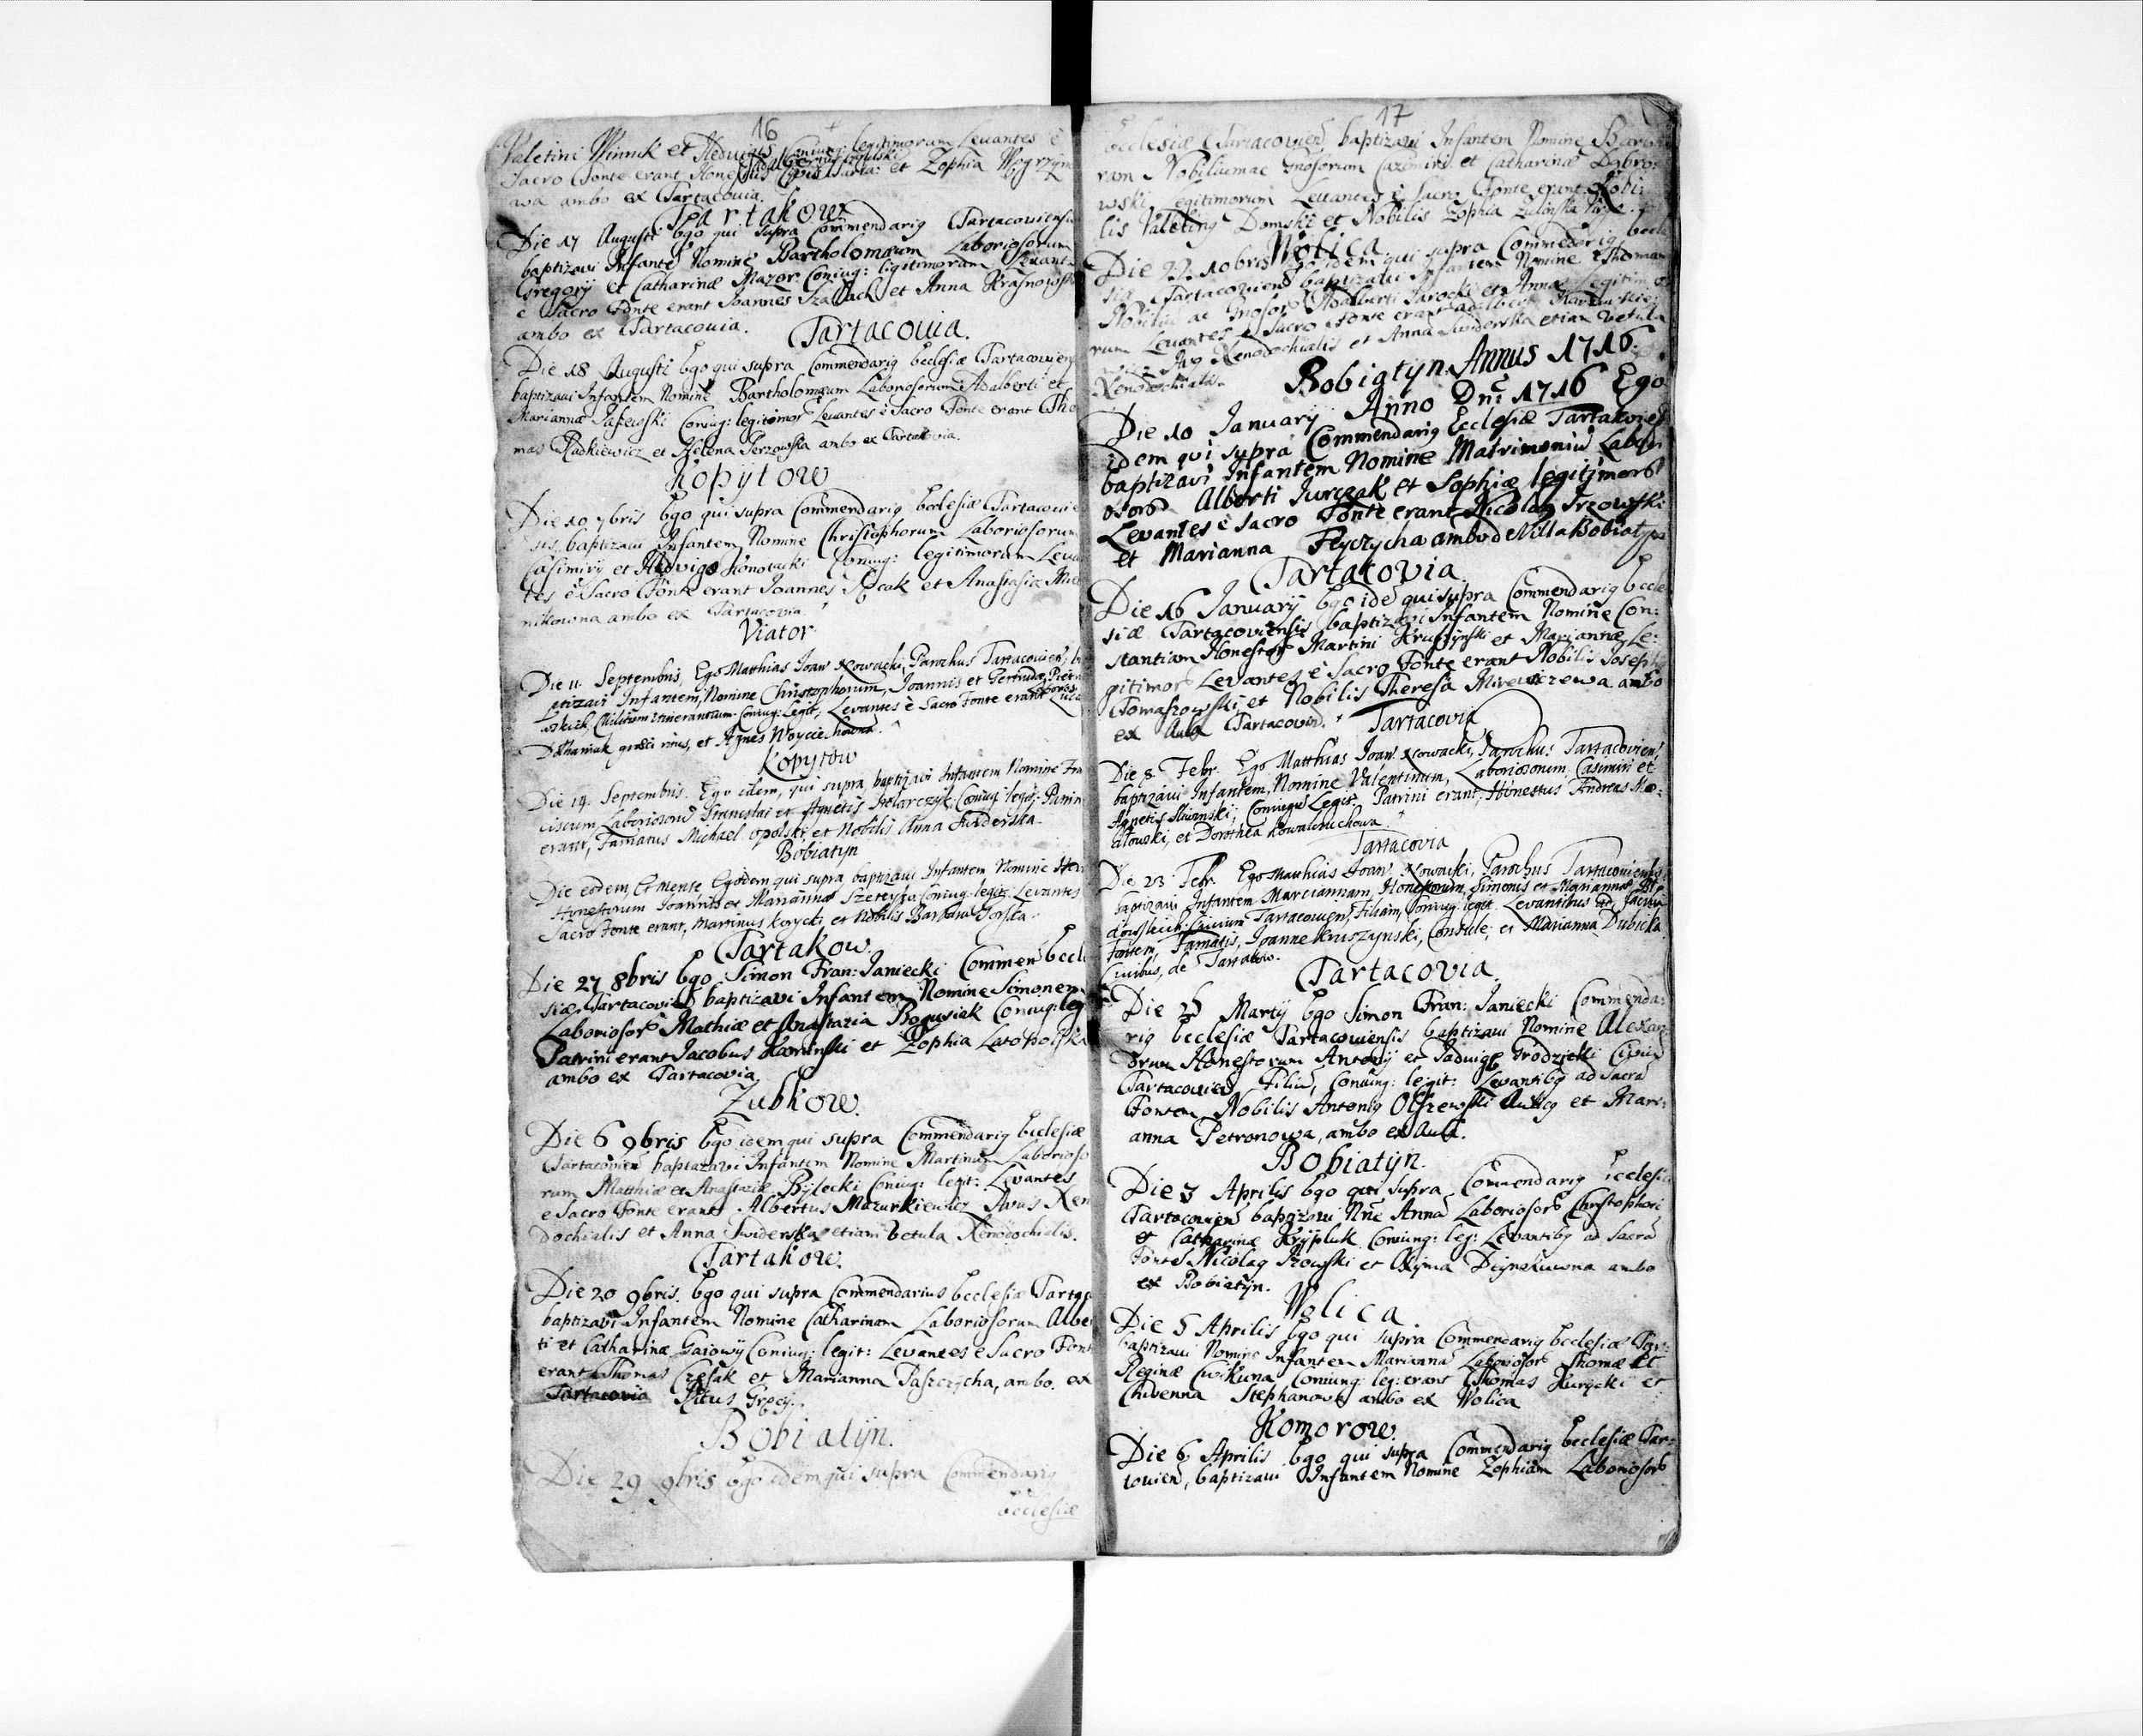 16
Valetini Winnik et Heduigis Coniug: legitimorum Leuantes è
Sacro Fonte erant Hones Ciuis Tarta: et Zophia Węgrzyno
wa ambo ex Tartacouia.
Tartakow
Die 17 Augusti Ego qui supra Commendarig Tartacouiensis
baptizaui Infante Nomine Bartholomæum Laboriosorum
Gregorÿ et Catharinæ Mazor Coniug: ligitimorum Leuant
è Sacro Fonte erant Joannes Szałłach et Anna Krasnowska
ambo ex Tartacouia.
Tartacouia.
Die 18 Augusti Ego qui supra Commendarig Ecclesiæ Tartacouien
baptizaui Infantem Nomine Bartholomæum Laboriosorum Adalberti et
Mariannæ Coniug: legitimor Leuantes è Sacro Fonte erant Tho
mas Radkiewicz et Helena Perzowska ambo ex Tartakovia.
Kopÿtow
Die 10 7bris Ego qui supra Commendarig Ecclesiæ Tartacouie
sis, baptizaui Infantem Nomine Christophorum Laboriosorum
Casimirÿ et Hedvigis Nowacki Coniug: legitimorum Leua
tes è Sacro Fonte erant Joannes et Anastasia
nikowna ambo ex Tartacovia
Viator.
Die 11. Septembris, Ego Matthias Joan: Nowacki, Parochus Tartacouien, ba
ptizaui Infantem, Nomine Christophorum, Joannis et Gertrudæ
Militum itinerantium Coniug: Legit; Levantes è Sacro Fonte erant Luca
græci ritus, et Agnes Woyciechowna.
Kopytow
Die 19. Septembris. Ego idem, qui supra, baptizaui Infantem Nomine Fra
ciscum, Laboriosorũ Stanislai et Agnetis Coniug: legit: Patrini
erant, Famatus Michael Opolski et Nobilis Anna Swiderska.
Bobiatyn
Die eodem, et mense Ego idem qui supra baptizaui Infantem Nomine
Honestorum Joannis et Mariannæ Coniug: legit: Levantes
Sacro Fonte erant, Martinus Korycki et Nobilis Barbara Gorska.
Tartakow.
Die 27 8bris Ego Simon Fran: Janiecki Commen Eccle
siæ Tartacovien baptizavi Infantem Nomine Simonem
Laboriosorũ Mathiæ et Anastazia Bogusiek Coniug: leg
Patrini erant Jacobus Kaminski et Zophia Latopolska
ambo ex Tartacovia
Zubkow.
Die 6 9bris Ego idem qui supra Commendarig Ecclesiæ
Tartacovien baptazavi Infantem Nomine Martinum Laborioso
rum Matthiæ et Anastaziæ Bÿlecki Coniug: legit: Levantes
e Sacro Fonte erant Albertus Mazurkiewicz Avus Xen
dochialis et Anna Swiderska etiam vetula Xenodochialis.
Tartakow.
Die 20 9bris. Ego qui supra Commendarius Ecclesiæ Tartac
baptizavi Infantem Nomine Catharinam Laboriosorum Alber
ti et Catharinæ Gaiowÿ Coniug: legit: Levantes e Sacro Font
erant Thomas Czesak et Marianna Paszczÿcha, ambo. ex
Tartacovia Ritus Græci.
Bobiatÿn.
Die 29 9bris Ego idem qui supra Commendarig
Ecclesiæ
17
Ecclesiæ Tartacouien baptizaui Infantem Nomine Barba
ram Nobiliumac Gnosorum Cazimiri et Catharinæ Dąbro:
wski Legitimorum Leuantes è Sacro Fonte erant Nobi:
lis Valeting Domski et Nobilis Zophia Zulinska Virgo.
Wolica
Die 22 10bris Ego idem qui supra Commendarig Eccle
siæ Tartacouien baptizaui Infantem Nomine Thomam
Nobiliũ ac Gnosorũ Adalberti Jarocki et Annæ Legitimo
rum Leuantes è Sacro Fonte erant Adalberti Mazurkie:
wicz Avg Xenodochialis et Anna Swiderska etiam vetula
Xenodochialis.
Bobiatyn. Annus 1716.
Die 10 Januarÿ Anno Dnī 1716 Ego
idem qui supra Commendarig Ecclesiæ Tartakovien
baptizavi Infantem Nomine Matrimoniũ Labori
osorũ Alberti Jurczak et Sophiæ legitimorũ
Levantes è Sacro Fonte erant Nicolag Jrzowski
et Marianna ambo de Villa Bobiatyn
Tartacovia.
Die 16 Januarÿ Ego idē qui supra Commendarig Eccle
siæ Tartacoviensis baptizavi Infantem Nomine Con:
stantiam Honestorũ Martini Kruszynski et Mariannæ Le:
gitimorũ Levantes è Sacro Fonte erant Nobilis Joseph
Tomaszowski et Nobilis Theresia Mirewiczewa ambo
ex Aula Tartacovien.
Tartacovia
Die 8. Febr. Ego Matthias Joan: Nowacki, Parochus Tartacovien
baptizaui Infantem, Nomine Valentinum, Laboriosorum, Casimiri et
Agnetis Sliwinski, Coniugũ Legit. Patrini erant, Honestus Andreas
et Dorothea Kowalczuchowa
Tartacovia
Die 23 Febr. Ego Matthias Joan: Nowacki, Parochus Tartacouiensis
baptizaui Infantem Marciannam, Honestorum, Simonis et Mariannæ
Ciuium Tartacouien, Filiam, Coniug: legit. Levantibus ad Sacrũ
Fontem, Famatis, Joanne Kruszynski, Consule, et Marianna Dubicka
Ciuibus, de Tartakow.
Tartacovia.
Die 25 Martÿ Ego Simon Fran: Janiecki Commenda:
rig Ecclesiæ Tartacouiensis baptizaui Nomine Alexan
drum Honestorum Antonÿ et Jadvigæ Grodzicki Civiũ
Tartacovien Filiũ, Coniung: legit: Levantibg ad Sacrũ
Fontem Nobilis Antonig Olszewski Aulicg et Mari:
anna Petronowa, ambo ex Aula.
Bobiatÿn.
Die 3 Aprilis Ego qui supra Commendarig Ecclesiæ
Tartacouien baptizavi Nñe Annã Laboriosorũ Christophori
et Catharinæ Krÿpluk Coniung: leg: Levantibg ad Sacrũ
Fontē Nicolag Jrzowski et Dÿnakuwna ambo
ex Bobiatÿn.
Wolica.
Die 5 Aprilis Ego qui supra Commendarig Ecclesiæ Tar:
baptizaui Nomine Infantem Mariannã Laboriosorũ Thomæ et
Reginæ Coniung: leg: erant Thomas Kurÿcki et
Chwenna Stephanowa ambo ex Wolica
Komorow.
Die 6 Aprilis Ego qui supra Commendarig Ecclesiæ Tar:
tovien, baptizaui Infantem Nomine Zophiam Laboriosorũ